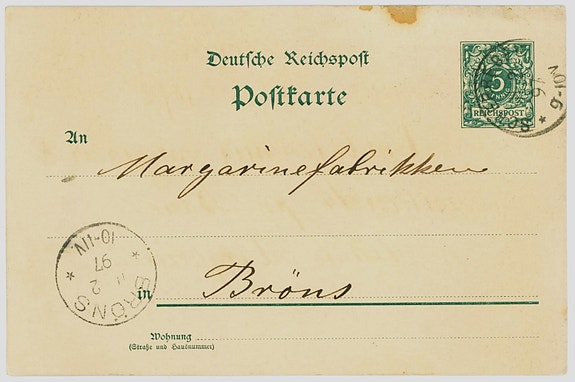 Deutsche Reichspost
Postkarte
5
PFENNIG
REICHSPOST
An
Margarinefabrikken
BRÖNS
2
97
10-11V
in Bröns
Wohnung
(Straße und Hausnummer)